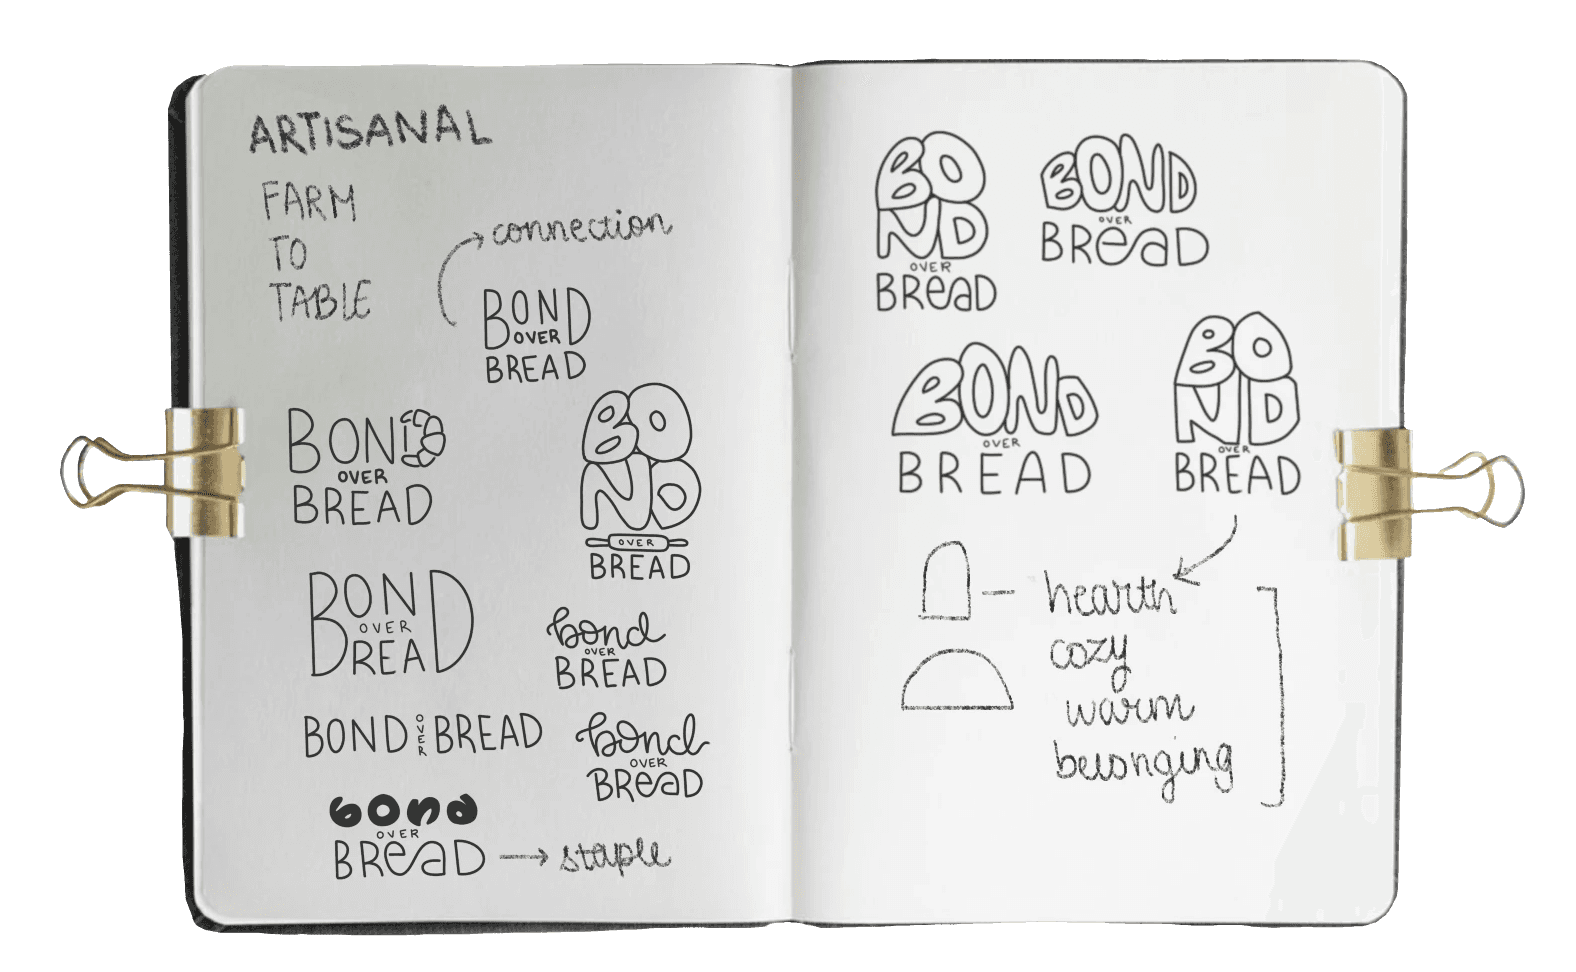 ARTISANAL
FARM
TO
TABLE
connection
BOND
OVER
BREAD
BOND
OVER
BREAD
BOND
OVER
BREAD
BOND
OVER
BREAD
bond
OVER
BREAD
BOND OVER BREAD
bond
OVER
BReaD
bond
OVER
BReaD
staple
BO
ND
OVER
BReaD
BOND
OVER
BReaD
BOND
OVER
BREAD
BO
ND
OVER
BREAD
hearth
cozy
warm
belonging